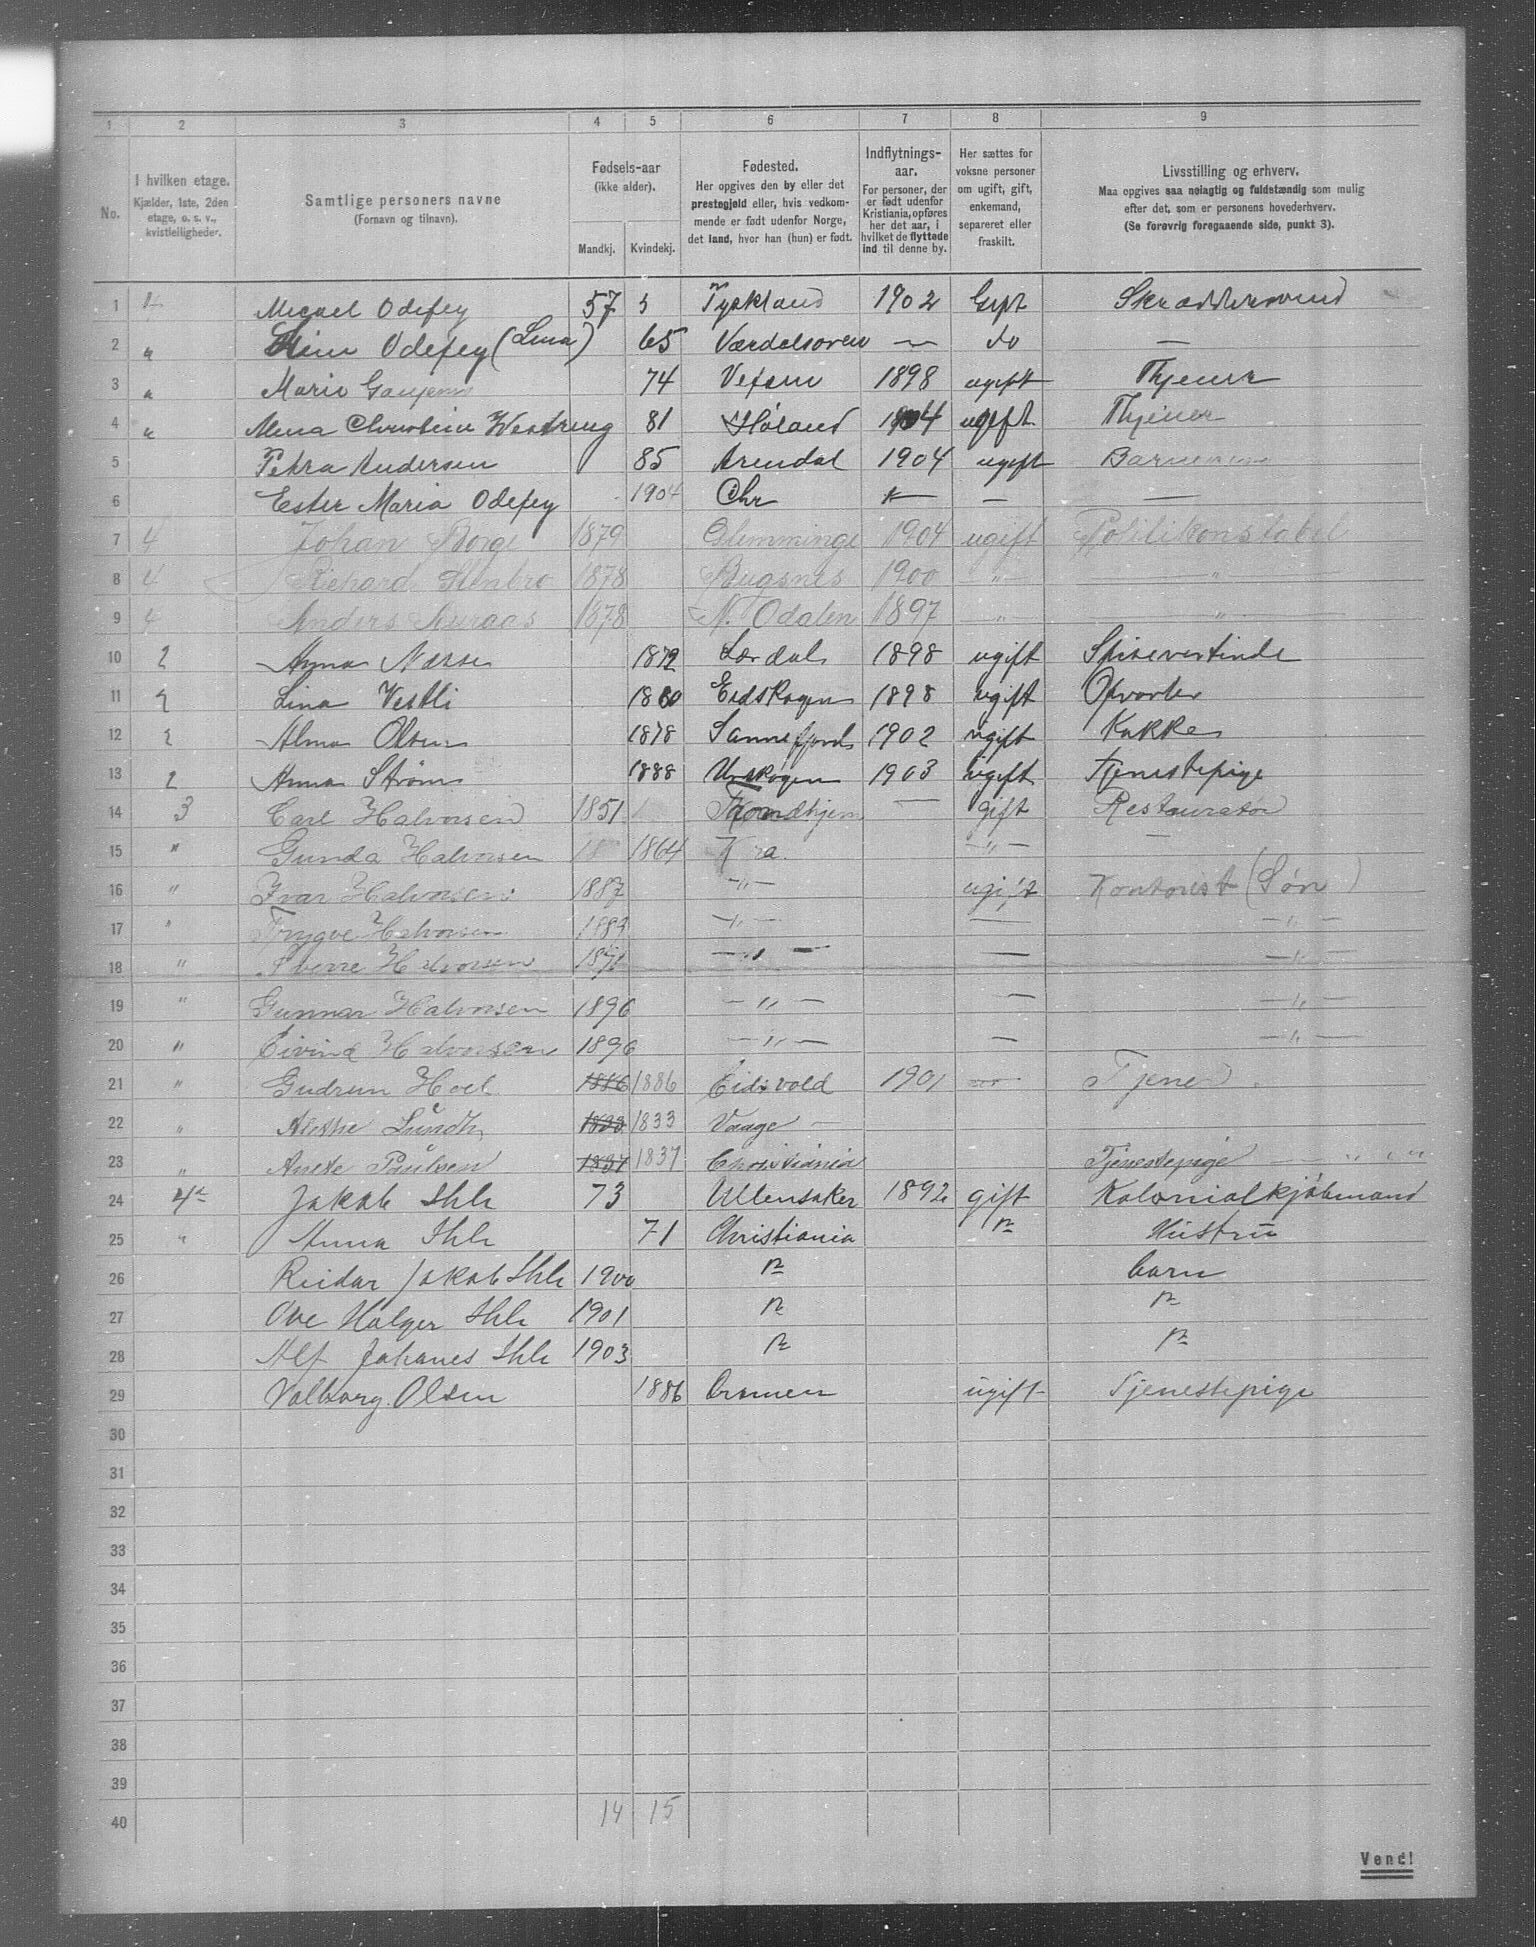 1 2 3 4 5 6 7 8 9
No.
I hvilken etage.
Kjælder, 1ste, 2den
etage, o. s. v.,
kvistleiligheder.
Samtlige personers navne
(Fornavn og tilnavn).
Fødsels-aar
(ikke alder).
Mandkj. Kvindekj.
Fødested.
Her opgives den by eller det
prestegjeld eller, hvis vedkom-
mende er født udenfor Norge,
det land, hvor han (hun) er født.
Indflytnings-
aar.
For personer, der
er født udenfor
Kristiania, opføres
her det aar, i
hvilket de flyttede
ind til denne by.
Her sættes for
voksne personer
om ugift, gift,
enkemand,
separeret eller
fraskilt.
Livsstilling og erhverv.
Maa opgives saa nøiagtig og fuldstændig som mulig
efter det, som er personens hovederhverv.
(Se forøvrig foregaaende side, punkt 3).
1 Micael Odefey 57 Tyskland 1902 Gift Skræddersvend
2 " Odefey (Lina) 65 Værdalsøren — do —
3 " Marie 74 Vefsen 1898 ugift Thjener
4 " Christine 81 Høland 1904 ugift Thjener
5 Petra Andersen 85 Arendal 1904 ugift
6 Ester Maria Odefey 1904 Chr — — —
7 4 Johan Borge 1879 Glemminge 1904 ugift Politikonstabel
8 4 Richard Stenbro 1878 1900 — " — "
9 4 Anders 1878 N. Odalen 1897 — " — "
10 2 Anna 1872 Lærdal 1898 ugift Spisevertinde
11 2 Lina Vestli 1880 Eidskogen 1898 ugift Opvarter
12 2 Alma Olsen 1878 Sannefjord 1902 ugift Kokke
13 2 Anna Strøm 1888 Urskogen 1903 ugift Tjenestepige
14 3 Carl Halvorsen 1851 Trondhjem — gift Restauratør
15 " Gunda Halvorsen 1864 Kra. — " — —
16 " Ivar Halvorsen 1887 — " — ugift Kontorist (Søn)
17 " Trygve Halvorsen — " — — — " —
18 " Sverre Halvorsen — " — — — " —
19 " Gunnar Halvorsen 1896 — " — — — " —
20 " Eivind Halvorsen 1896 — " — — — " —
21 " Gudrun Hoel 1886 1886 Eidsvold 1901 Tjener
22 " Lundh 1833 1833 Vaage —
23 " Anette Paulsen 1837 1837 Christiania Tjenestepige — " " "
24 4de Jakob Ihle 73 Ullensaker 1892 gift Kolonialkjøbmand
25 " Anna Ihle 71 Christiania " Hustru
26 Reidar Jakob Ihle 1900 " barn
27 Ove Holger Ihle 1901 " "
28 Alf Johanes Ihle 1903 " "
29 Valborg Olsen 1886 ugift Tjenestepige
30
31
32
33
34
35
36
37
38
39
40 14 15
Vend!